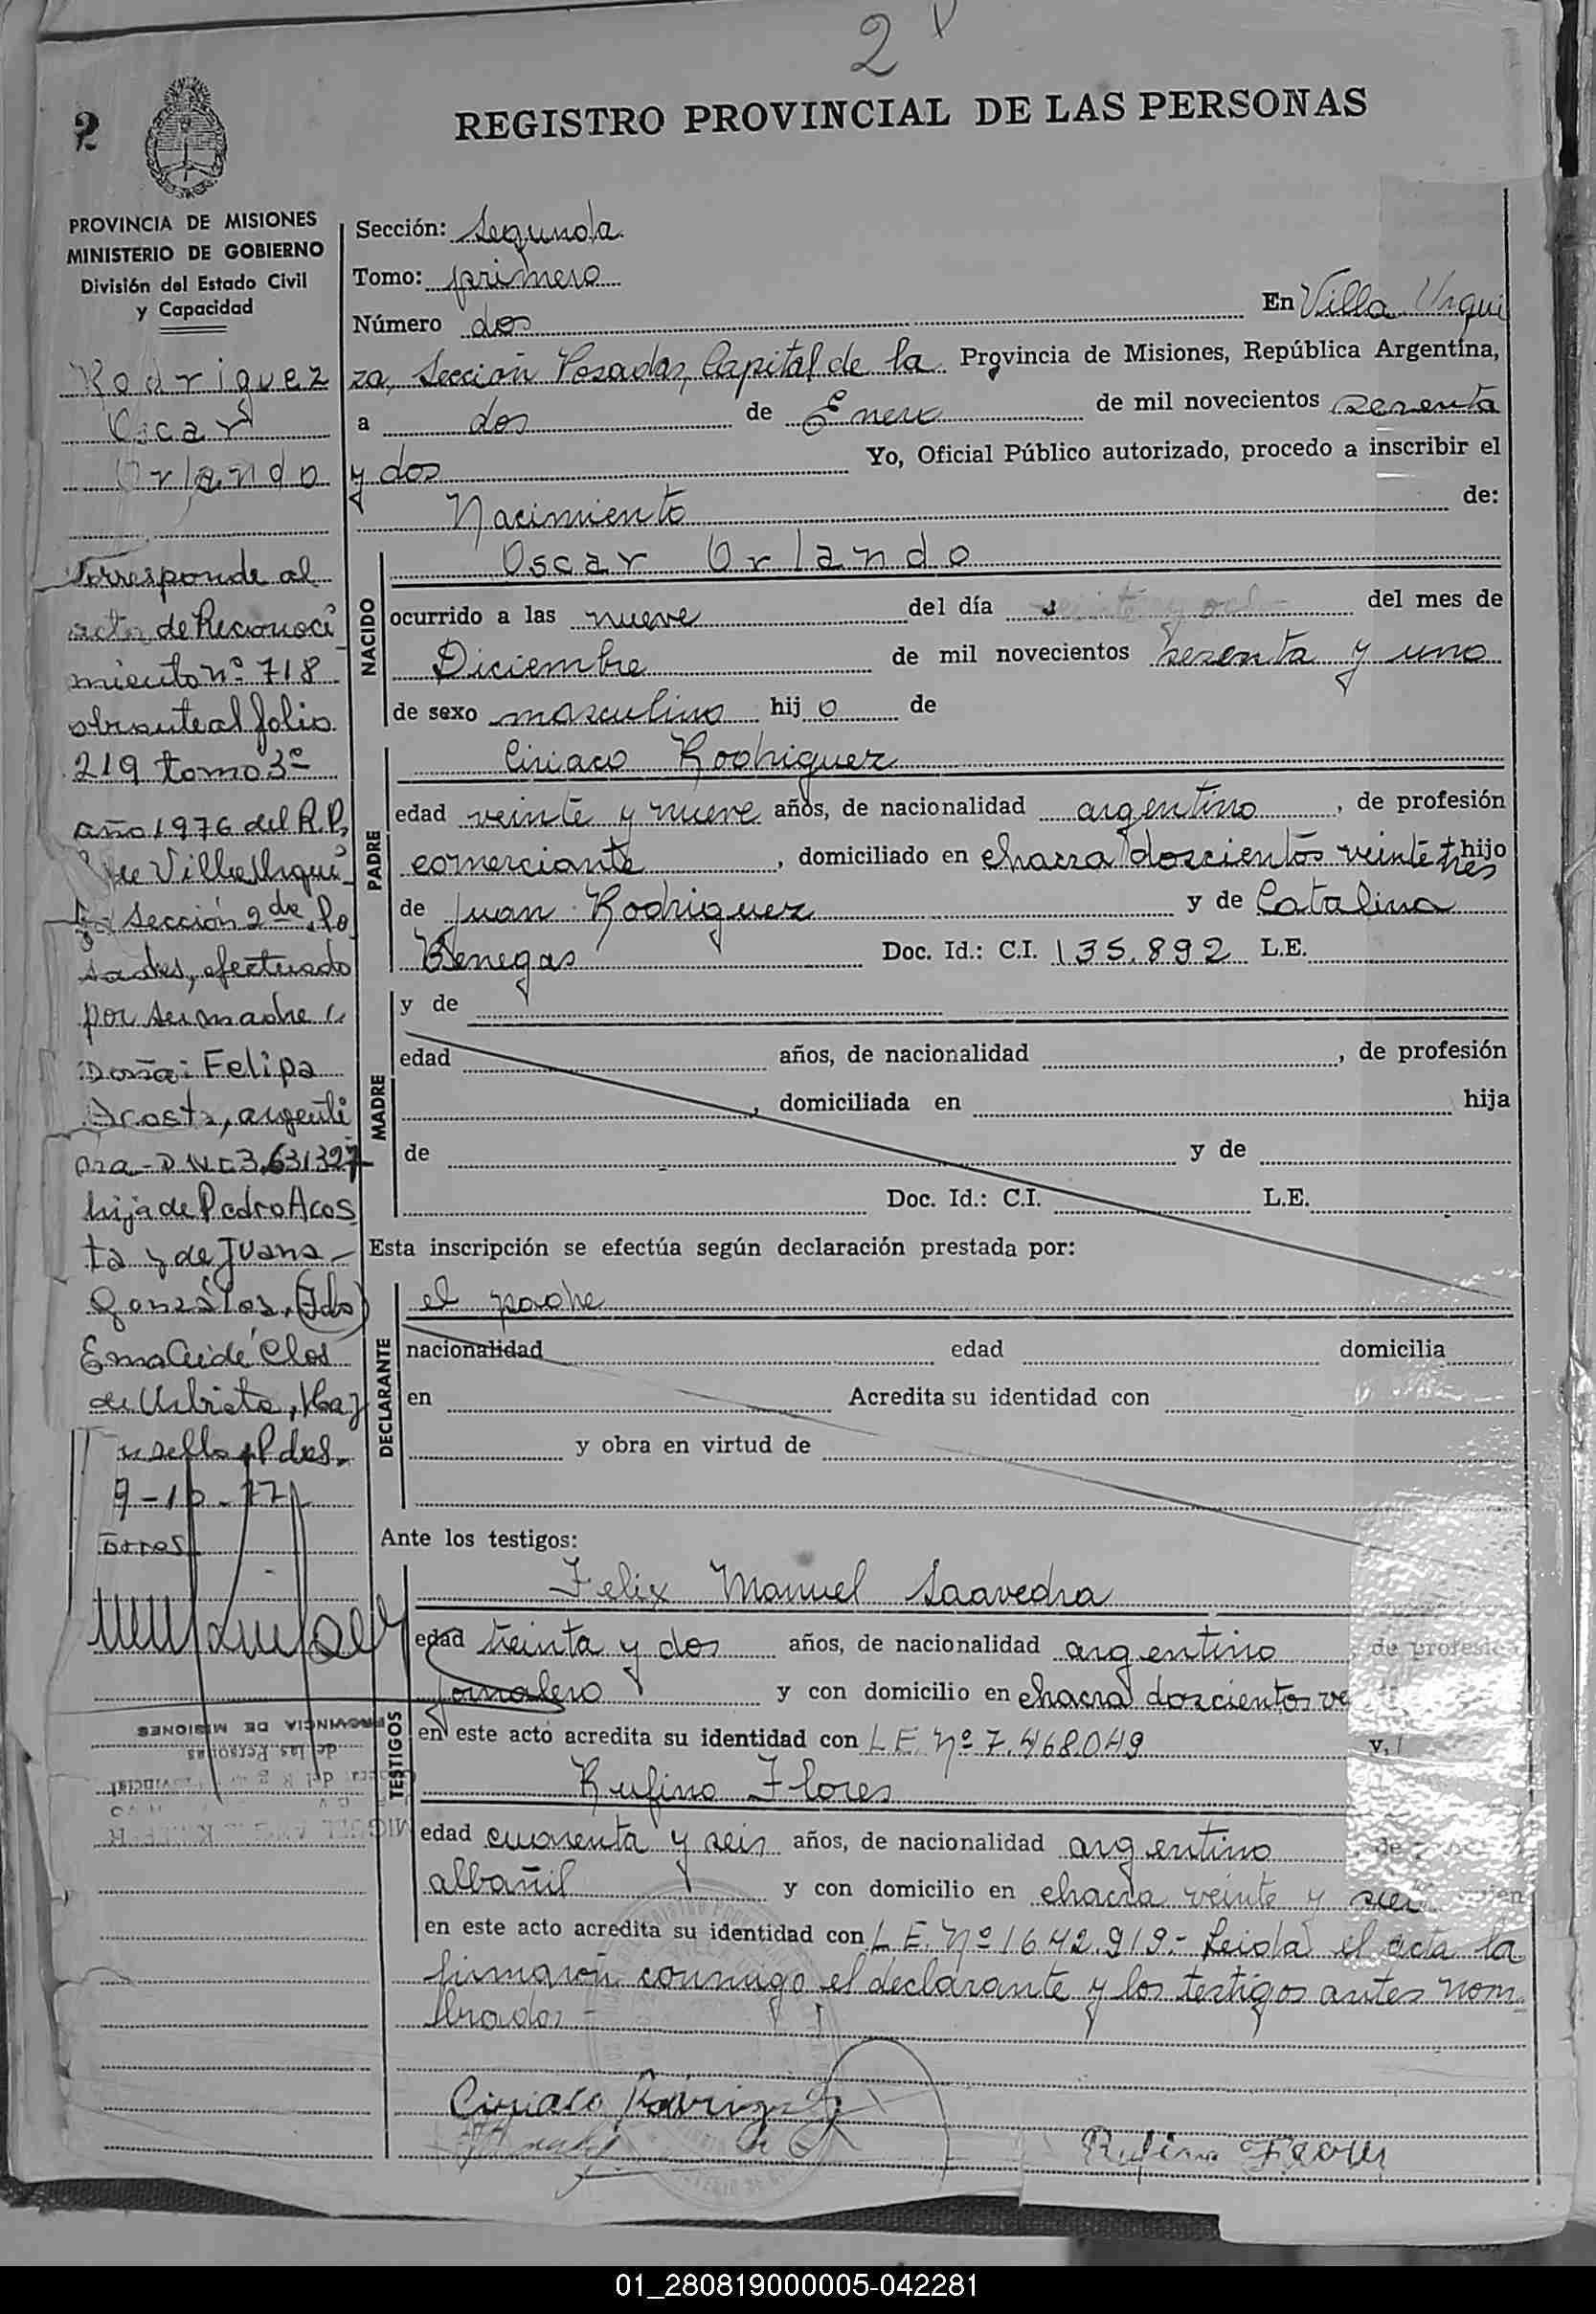 2
2
REGISTRO PROVINCIAL DE LAS PERSONAS
PROVINCIA DE MISIONES
MINISTERIO DE GOBIERNO
División del Estado Civil
y Capacidad
Rodriguez
Oscar
Orlando
Corresponde al
acta de Reconoci
miento nº 718
obrante al folio
219 tomo 3º
año 1976 del R.P.
de Villa Urqui
za Sección 2da, Po
sadas, efectuado
por su madre
Doña: Felipa
Acosta, argenti
na - DNI 3.631327
hija de Pedro Acos
ta y de Juana
Gonzáles, (Fdo)
Ema Aidé Clos
de Urbieta, Hay
un sello Pdas.
9-10-77
PROVINCIA DE MISIONES
de las Personas
Sección: Segunda
Tomo: primero
Número dos
En Villa Urqui
za, Sección Posadas, Capital de la Provincia de Misiones, República Argentina,
a dos de Enero de mil novecientos sesenta
y dos Yo, Oficial Público autorizado, procedo a inscribir el
Nacimiento de:
NACIDO
Oscar Orlando
ocurrido a las nueve del día veinte y ocho del mes de
Diciembre de mil novecientos sesenta y uno
de sexo masculino hijo de
PADRE
Ciriaco Rodriguez
edad veinte y nueve años, de nacionalidad argentino, de profesión
comerciante, domiciliado en chacra doscientos veinte tres hijo
de Juan Rodriguez y de Catalina
Benegas Doc. Id.: C.I. 135.892 L.E.
MADRE
y de
edad años, de nacionalidad , de profesión
, domiciliada en hija
de y de
Doc. Id.: C.I. L.E.
Esta inscripción se efectúa según declaración prestada por:
DECLARANTE
el padre
nacionalidad edad domicilia
en Acredita su identidad con
y obra en virtud de
Ante los testigos:
TESTIGOS
Felix Manuel Saavedra
edad treinta y dos años, de nacionalidad argentino de profesió
jornalero y con domicilio en chacra doscientos ve
en este acto acredita su identidad con L.E. Nº 7.468.049 y,
Rufino Flores
edad cuarenta y seis años, de nacionalidad argentino de
albañil y con domicilio en chacra veinte y siete quien
en este acto acredita su identidad con L.E. Nº 1642.919.- Leida el acta la
firmaron conmigo el declarante y los testigos antes nom
brados -
Ciriaco Rodriguez
Rufino Flores
01_280819000005-042281